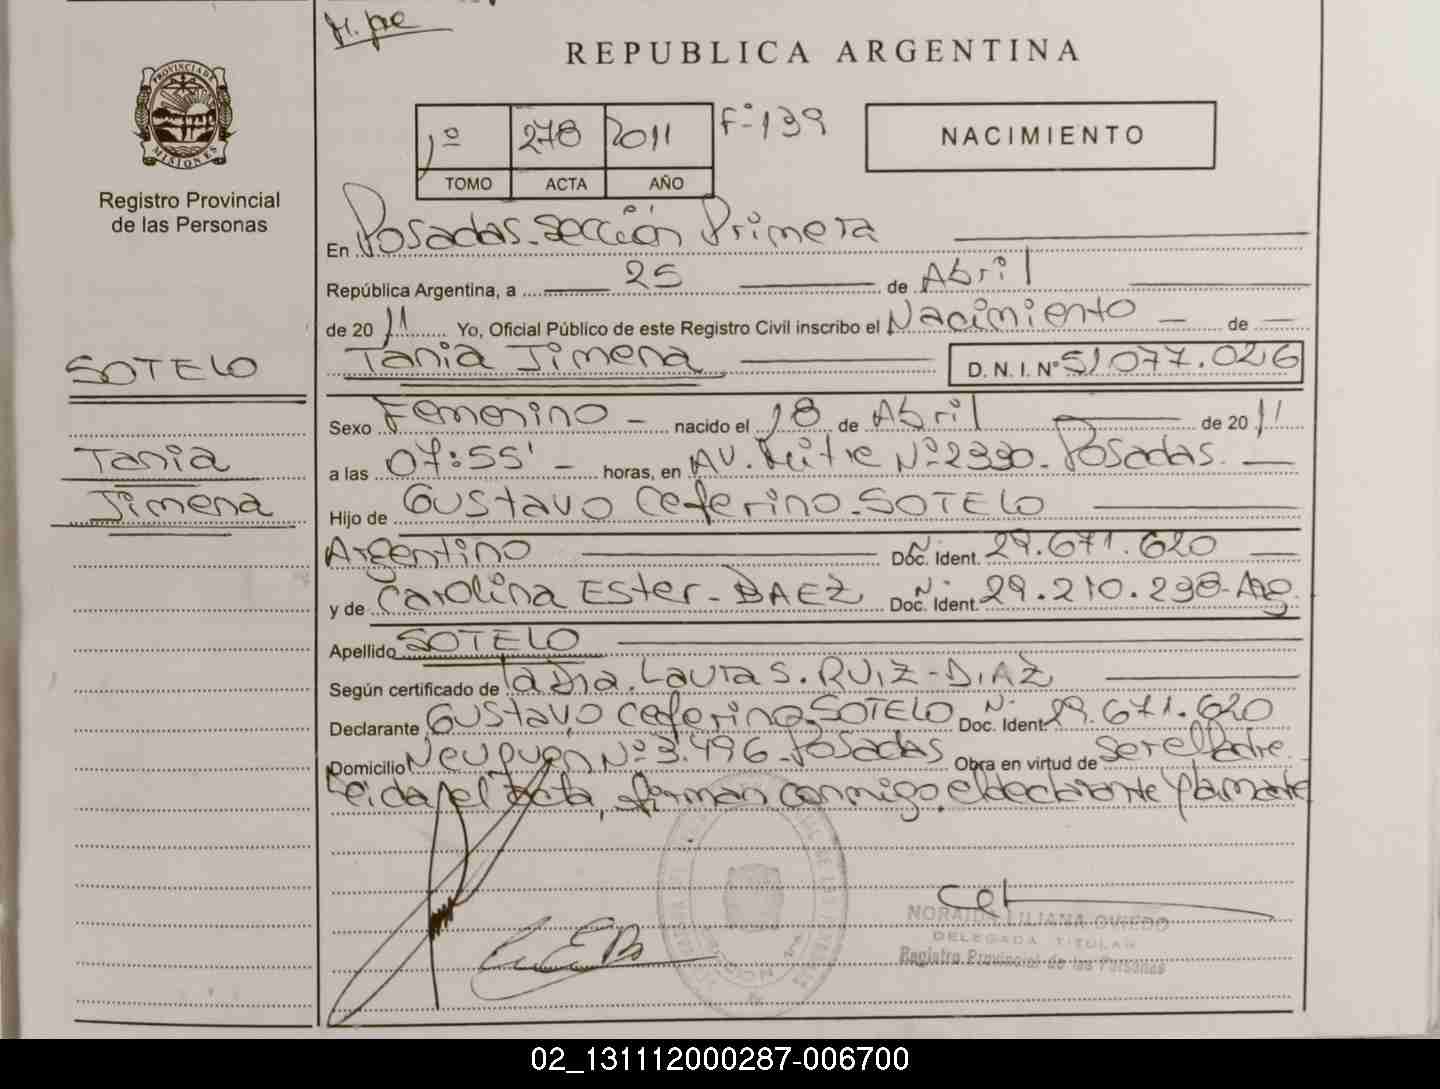 REPUBLICA ARGENTINA
PROVINCIA DE MISIONES
Registro Provincial
de las Personas
1º 278 2011 Fº 139
TOMO ACTA AÑO
NACIMIENTO
En Posadas. Sección Primera
República Argentina, a 25 de Abril
de 2011 Yo, Oficial Público de este Registro Civil inscribo el Nacimiento de
Tania Jimena D. N. I. Nº 51.077.026
SOTELO
Tania
Jimena
Sexo Femenino nacido el 18 de Abril de 2011
a las 07:55' horas, en AV. Mitre Nº 2390. Posadas.
Hijo de Gustavo Ceferino. SOTELO
Argentino Doc. Ident. Nº 29.671.620
y de Carolina Ester - BAEZ Doc. Ident. Nº 29.210.238- Arg.
Apellido SOTELO
Según certificado de la Dra. Laura S. RUIZ - DIAZ
Declarante Gustavo Ceferino SOTELO Doc. Ident. Nº 29.671.620
Domicilio Neuquén Nº 3.496. Posadas Obra en virtud de ser el Padre.
Leída el Acta, firman conmigo. el declarante y la madre
NORAIDA LILIANA OVIEDO
DELEGADA TITULAR
Registro Provincial de las Personas
02_131112000287-006700